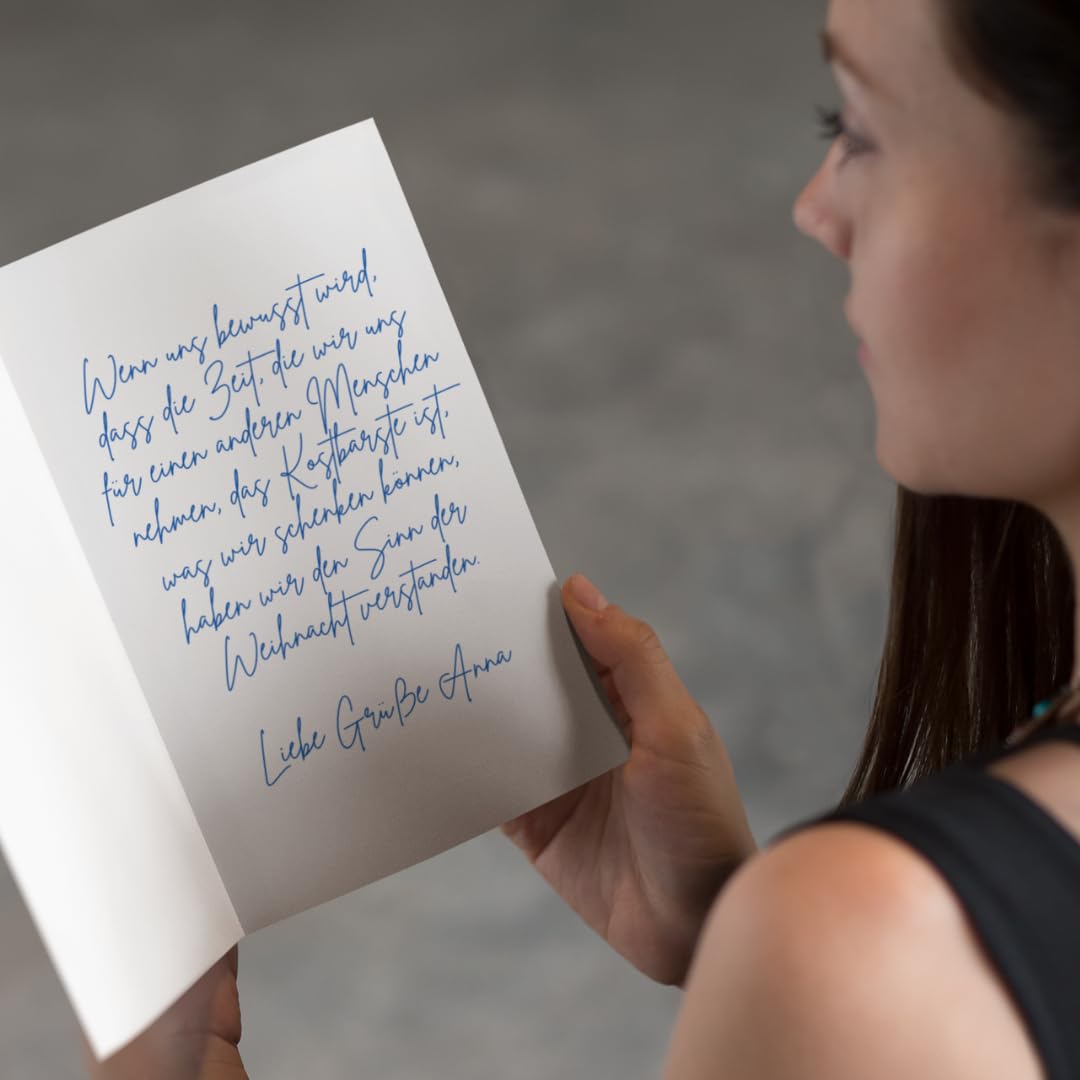 Wenn uns bewusst wird,
dass die Zeit, die wir uns
für einen anderen Menschen
nehmen, das Kostbarste ist,
was wir schenken können,
haben wir den Sinn der
Weihnacht verstanden.
Liebe Grüße Anna